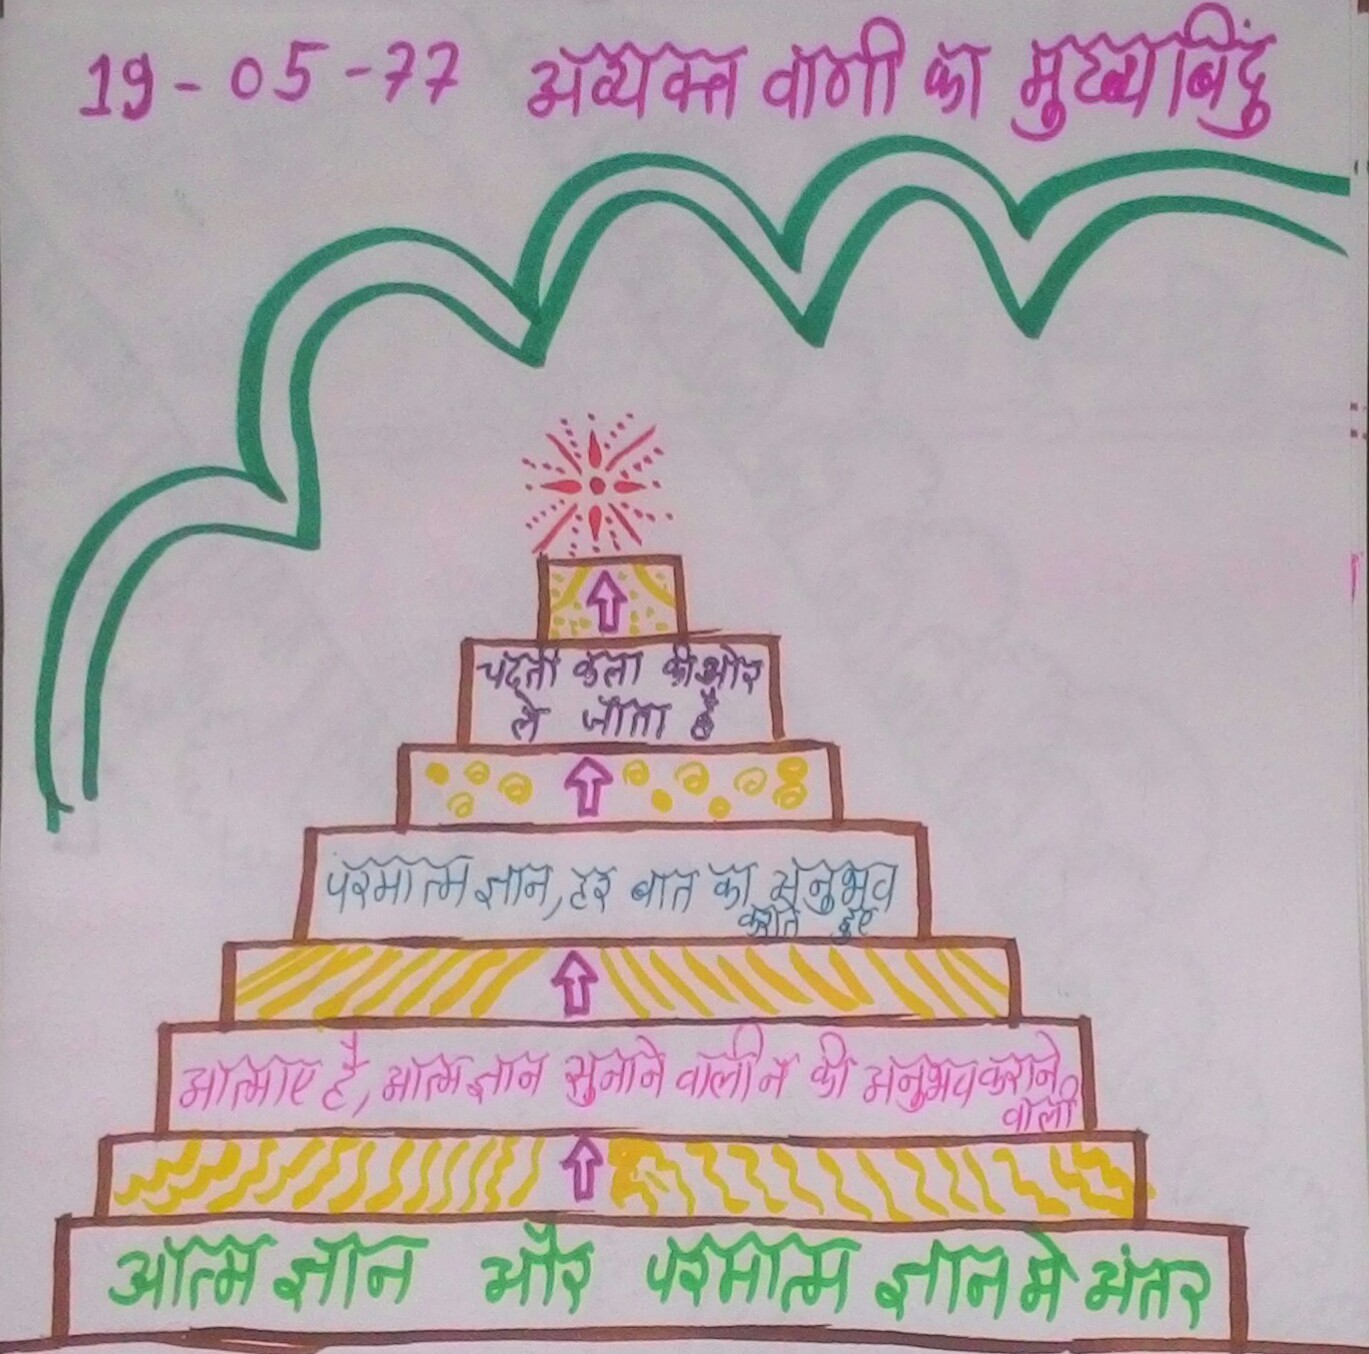 19-05-77 अव्यक्त वाणी का मुख्य बिंदु
चढ़ती कला की ओर
ले जाता है
परमात्म ज्ञान, हर बात का अनुभव
कराते हुए
आत्माए है, आत्म ज्ञान सुनाने वाली न की अनुभव कराने
वाली
आत्म ज्ञान और परमात्म ज्ञान मे अंतर